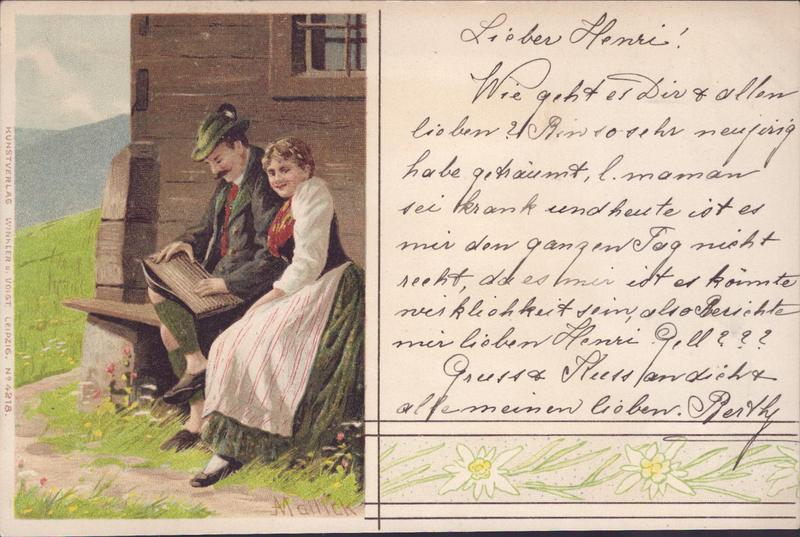 Lieber Henri!
Wie geht es Dir & allen
lieben? Bin so sehr neujirig
habe geträumt, l. maman
sei krank und heute ist es
mir den ganzen Tag nicht
recht, da es mir ist es könnte
wirklichkeit sein, also Berichte
mir lieben Henri Gell???
Gruss & Kuss an dich &
alle meinen lieben. Berthy
KUNSTVERLAG WINKLER & VOIGT, LEIPZIG. No 4218.
Mailick